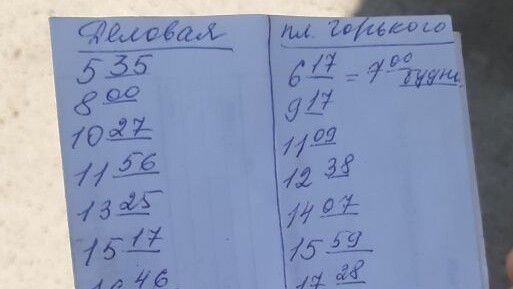 Деловая
5 35
8 00
10 27
11 56
13 25
15 17
46
пл. Горького
6 17 = 7 00 будни
9 17
11 09
12 38
14 07
15 59
17 28